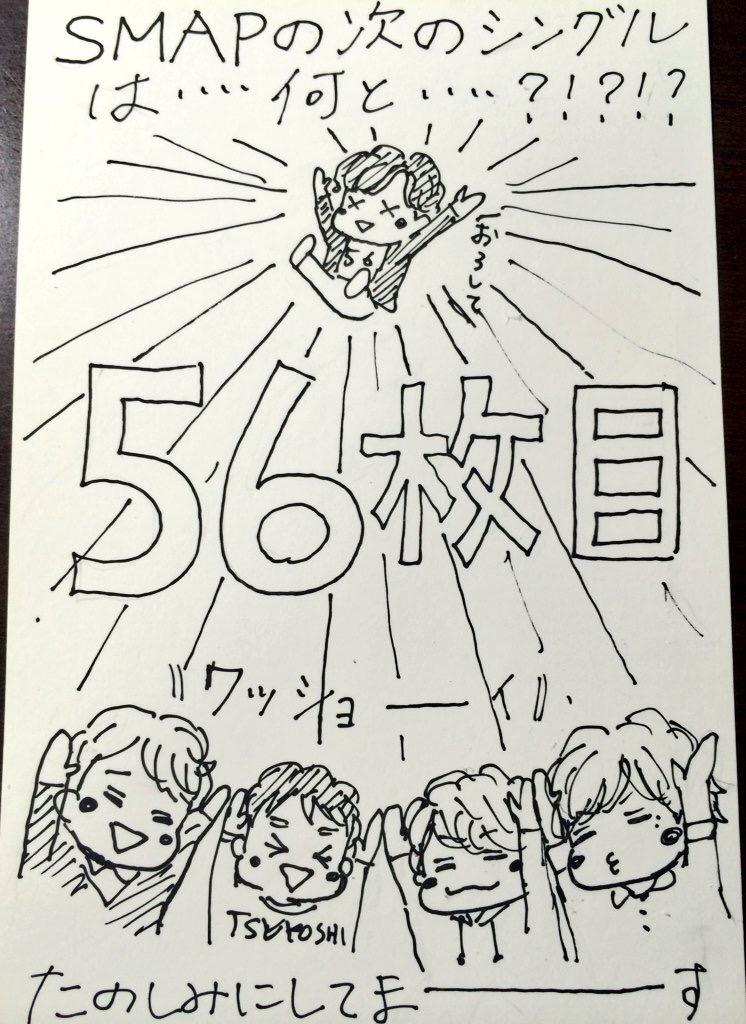 SMAPの次のシングル
は‥‥何と‥‥?!?!?
おろして
56
56枚目
ワッショーイ
TSUYOSHI
たのしみにしてまーーす